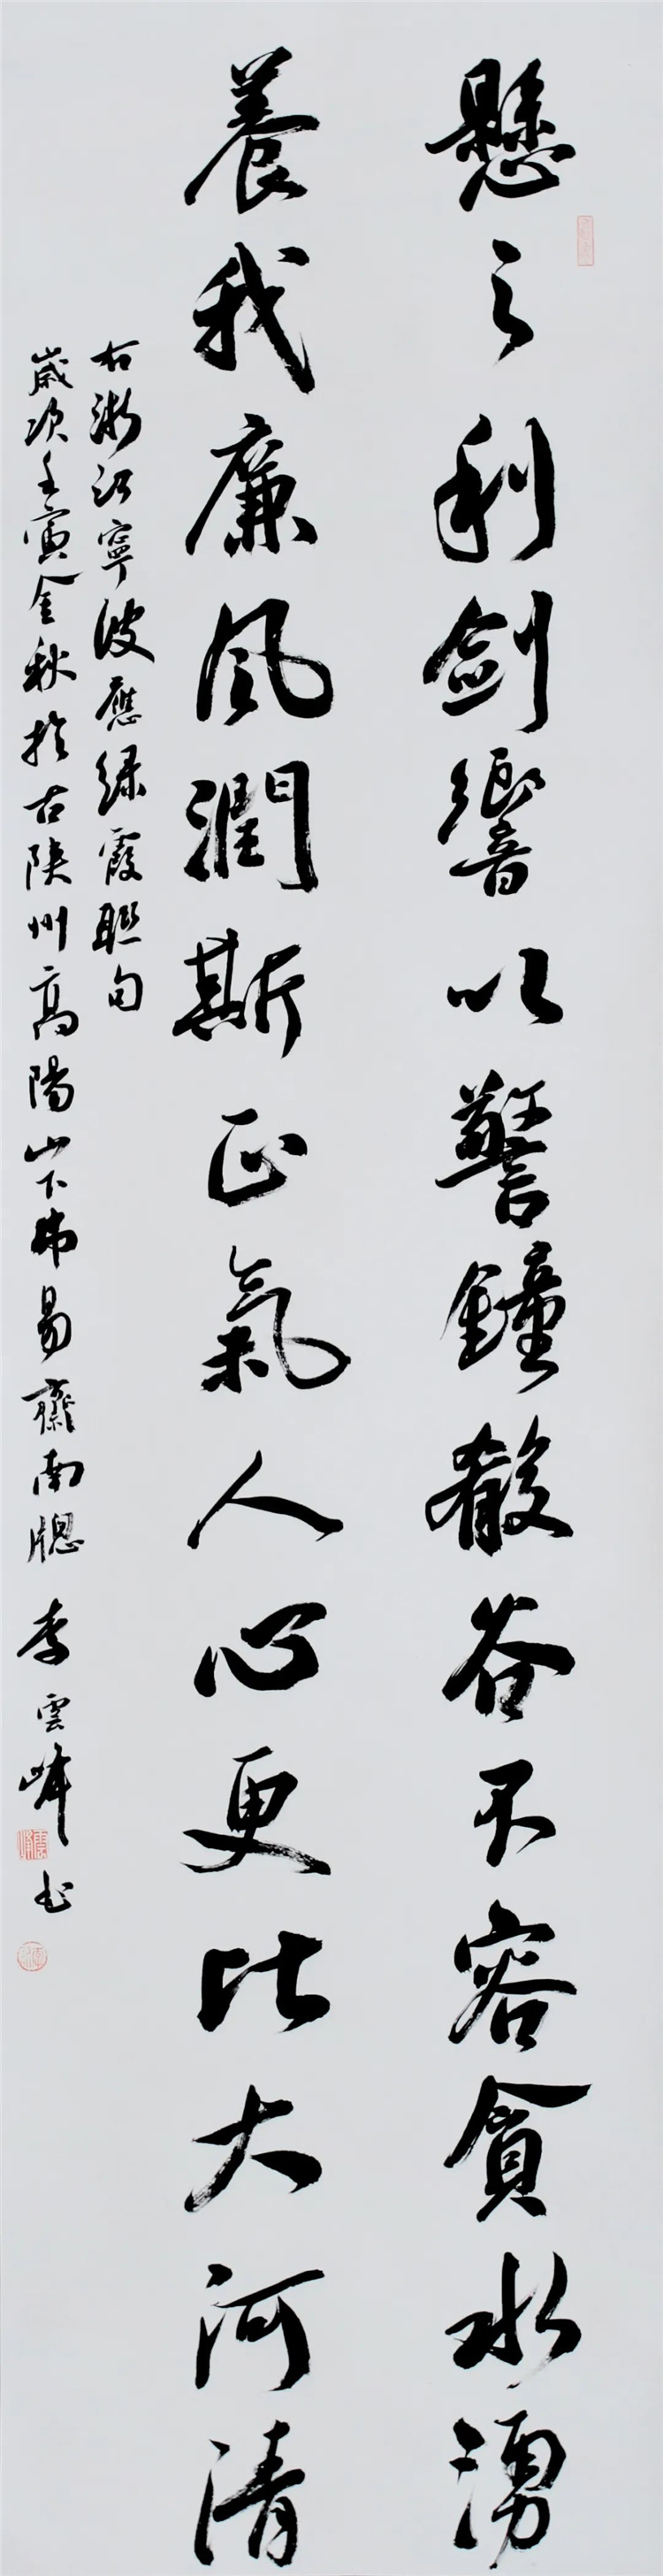 懸之利劍響以警鐘散谷不容貪水湧
養我廉風潤斯正氣人心更比大河清
右浙江寧波應綠霞聯句
歲次壬寅金秋於古陝州高陽山下弗易齋南牕 李雲峰書